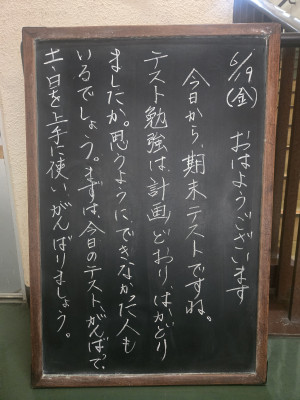 6/19(金)
おはようございます
今日から、期末テストですね。
テスト勉強は、計画どおり、はかどり
ましたか。思うように、できなかった人も
いるでしょう。まずは、今日のテスト、がんばって、
土・日を上手に使い、がんばりましょう。